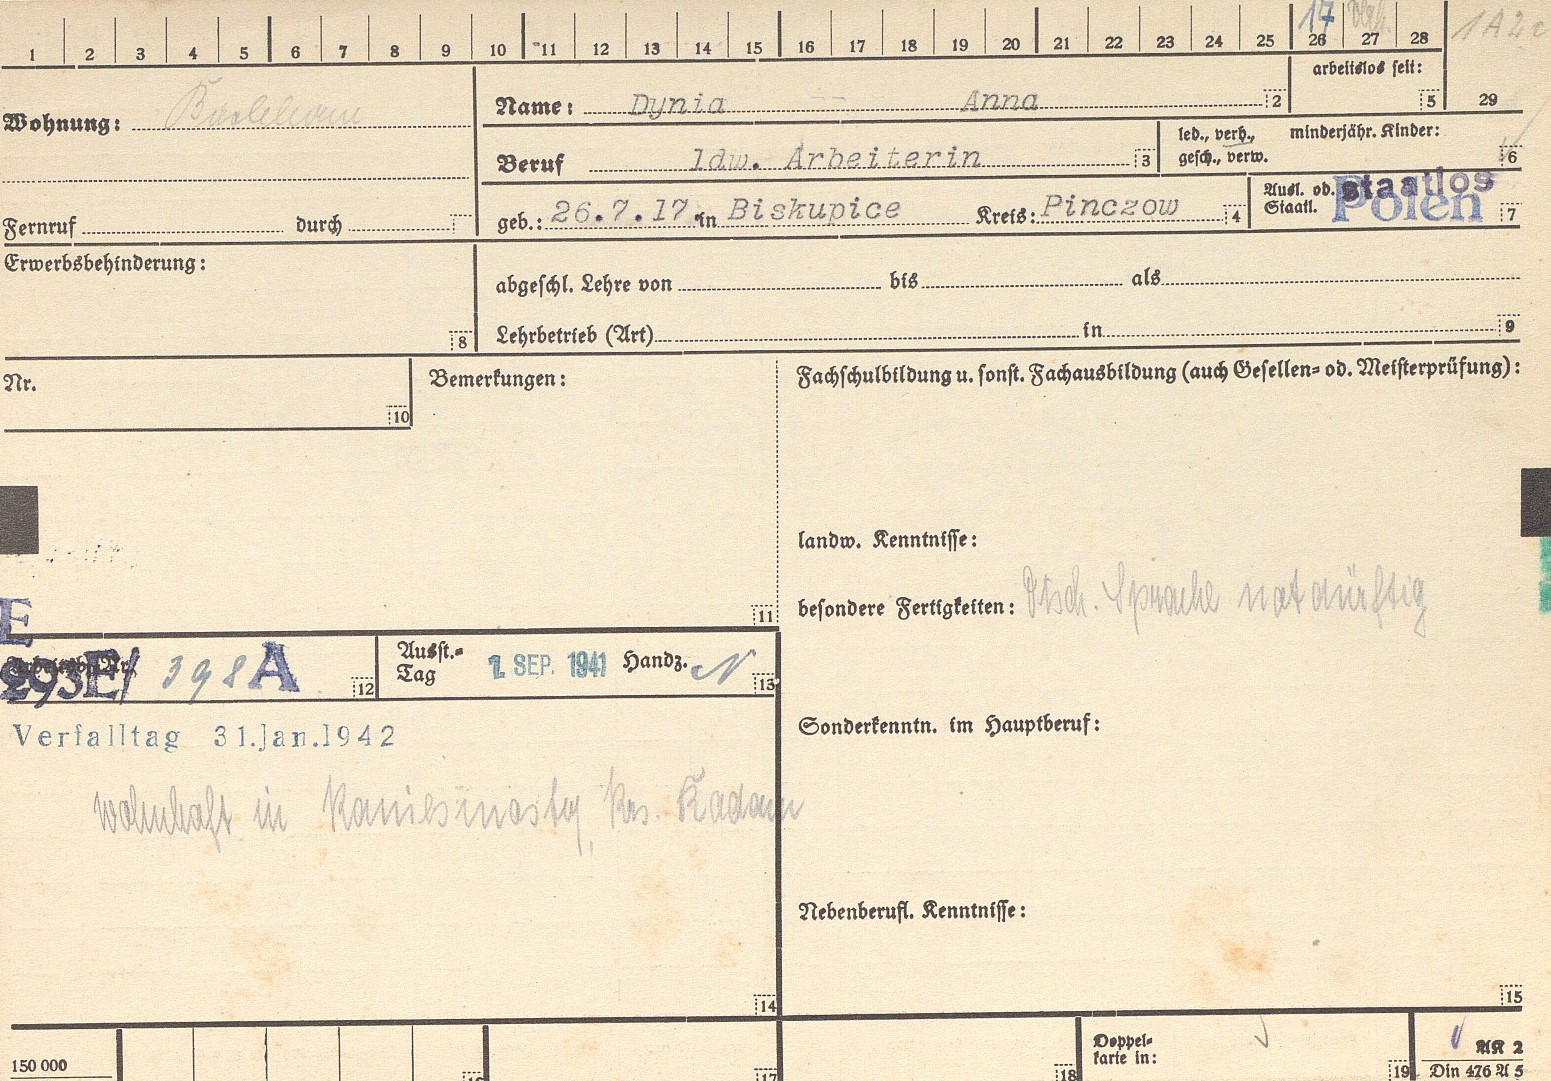 1 2 3 4 5 6 7 8 9 10 11 12 13 14 15 16 17 18 19 20 21 22 23 24 25 26 27 28
17
1A2c
arbeitslos seit: 5
29
Wohnung:
Name: Dynia Anna 2
Beruf ldw. Arbeiterin 3
led., verh., minderjähr. Kinder:
gesch., verw. 6
Fernruf durch
geb.: 26.7.17. in Biskupice Kreis: Pinczow 4
Ausl. od. staatlos
Staatl. Polen 7
Erwerbsbehinderung: 8
abgeschl. Lehre von bis als
Lehrbetrieb (Art) in 9
Nr. 10
Bemerkungen: 11
Fachschulbildung u. sonst. Fachausbildung (auch Gesellen- od. Meisterprüfung):
landw. Kenntnisse:
besondere Fertigkeiten: Dtsch. Sprache notdürftig
E
Arbeitsb. Nr.
293E/ 398 A 12
Ausst.-
Tag 1. SEP. 1941 Handz. N 13
Verfalltag 31.Jan.1942
wohnhaft in
Sonderkenntn. im Hauptberuf:
Nebenberufl. Kenntnisse:
14
15
150 000
16
17
18
Doppel-
karte in: 19
AK 2
Din 476 A 5